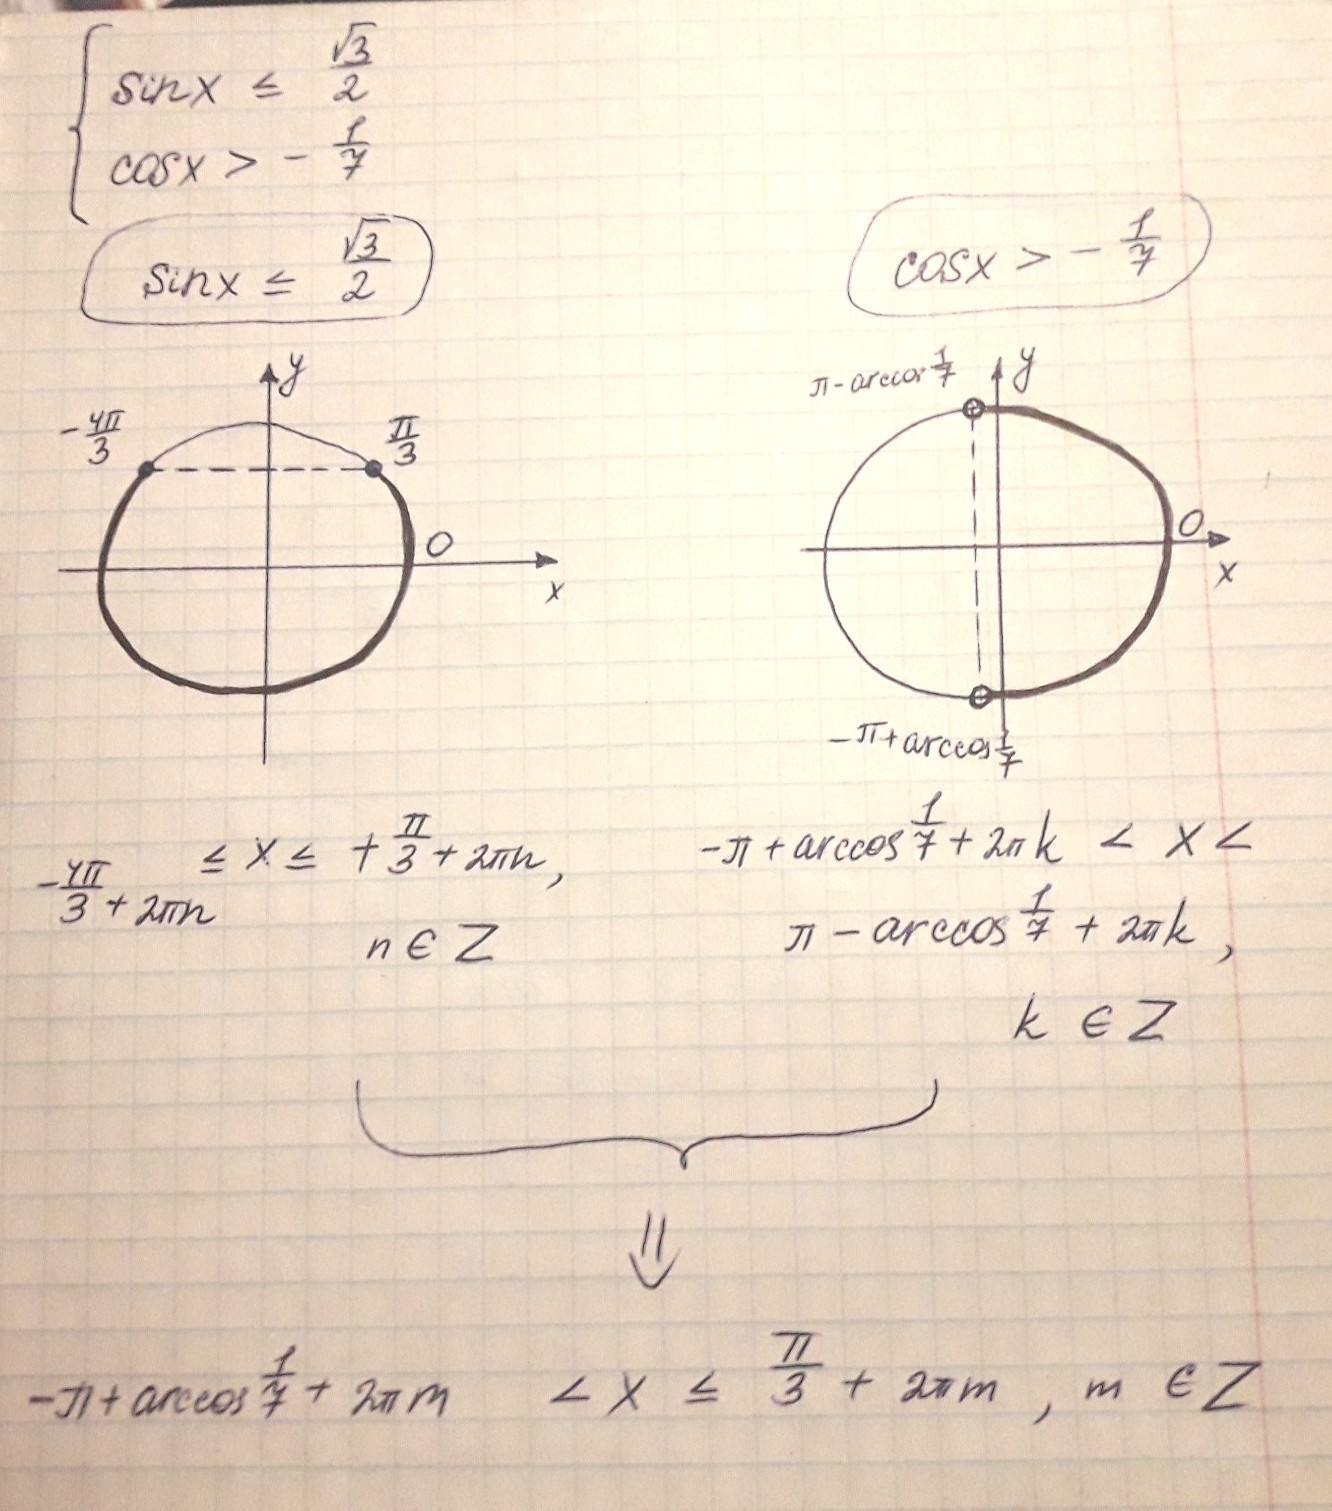 sinx ≤ √3/2
cosx > - 1/7
sinx ≤ √3/2
cosx > - 1/7
y
-4π/3
π/3
0
x
π - arccos 1/7
y
0
x
-π + arccos 1/7
-4π/3 + 2πn ≤ x ≤ + π/3 + 2πn,
n ∈ Z
-π + arccos 1/7 + 2πk < x <
π - arccos 1/7 + 2πk,
k ∈ Z
⇓
-π + arccos 1/7 + 2πm < x ≤ π/3 + 2πm, m ∈ Z